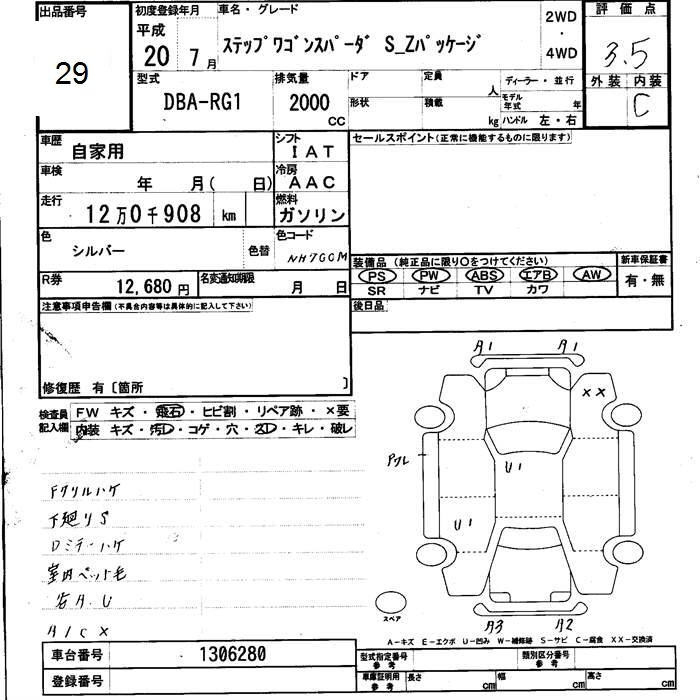 出品番号 初度登録年月 車名・グレード 2WD・4WD 評価点
29 平成 20 7月 ステップワゴンスパーダ S_Zパッケージ 3.5
型式 排気量 ドア 定員 人 ディーラー・並行 外装 内装
DBA-RG1 2000 CC 形状 積載 kg モデル年式 年 ハンドル 左・右 C
車歴 自家用 シフト IAT セールスポイント(正常に機能するものに限ります)
車検 年 月( 日) 冷房 AAC
走行 12万0千908 km 燃料 ガソリン
色 シルバー 色替 色コード NH700M
装備品(純正品に限り○をつけてください) 新車保証書
PS PW ABS エアB AW 有・無
SR ナビ TV カワ
R券 12,680円 名変通知期限 月 日
後日品
注意事項申告欄(不具合内容等は具体的に記入して下さい)
修復歴 有〔箇所 〕
検査員記入欄 FW キズ・飛石・ヒビ割・リペア跡・×要
内装 キズ・汚レ・コゲ・穴・スレ・キレ・破レ
A1 A1
XX
U1
U1
A3 A2
Fグリルハゲ
下廻りS
Dミラーハゲ
室内ペット毛
右A.U
A/C X
スペア
A-キズ E-エクボ U-凹み W-補修跡 S-サビ C-腐食 XX-交換済
車台番号 1306280
登録番号
型式指定番号 参考 類別区分番号 参考
車庫証明用 参考 長さ cm 幅 cm 高さ cm